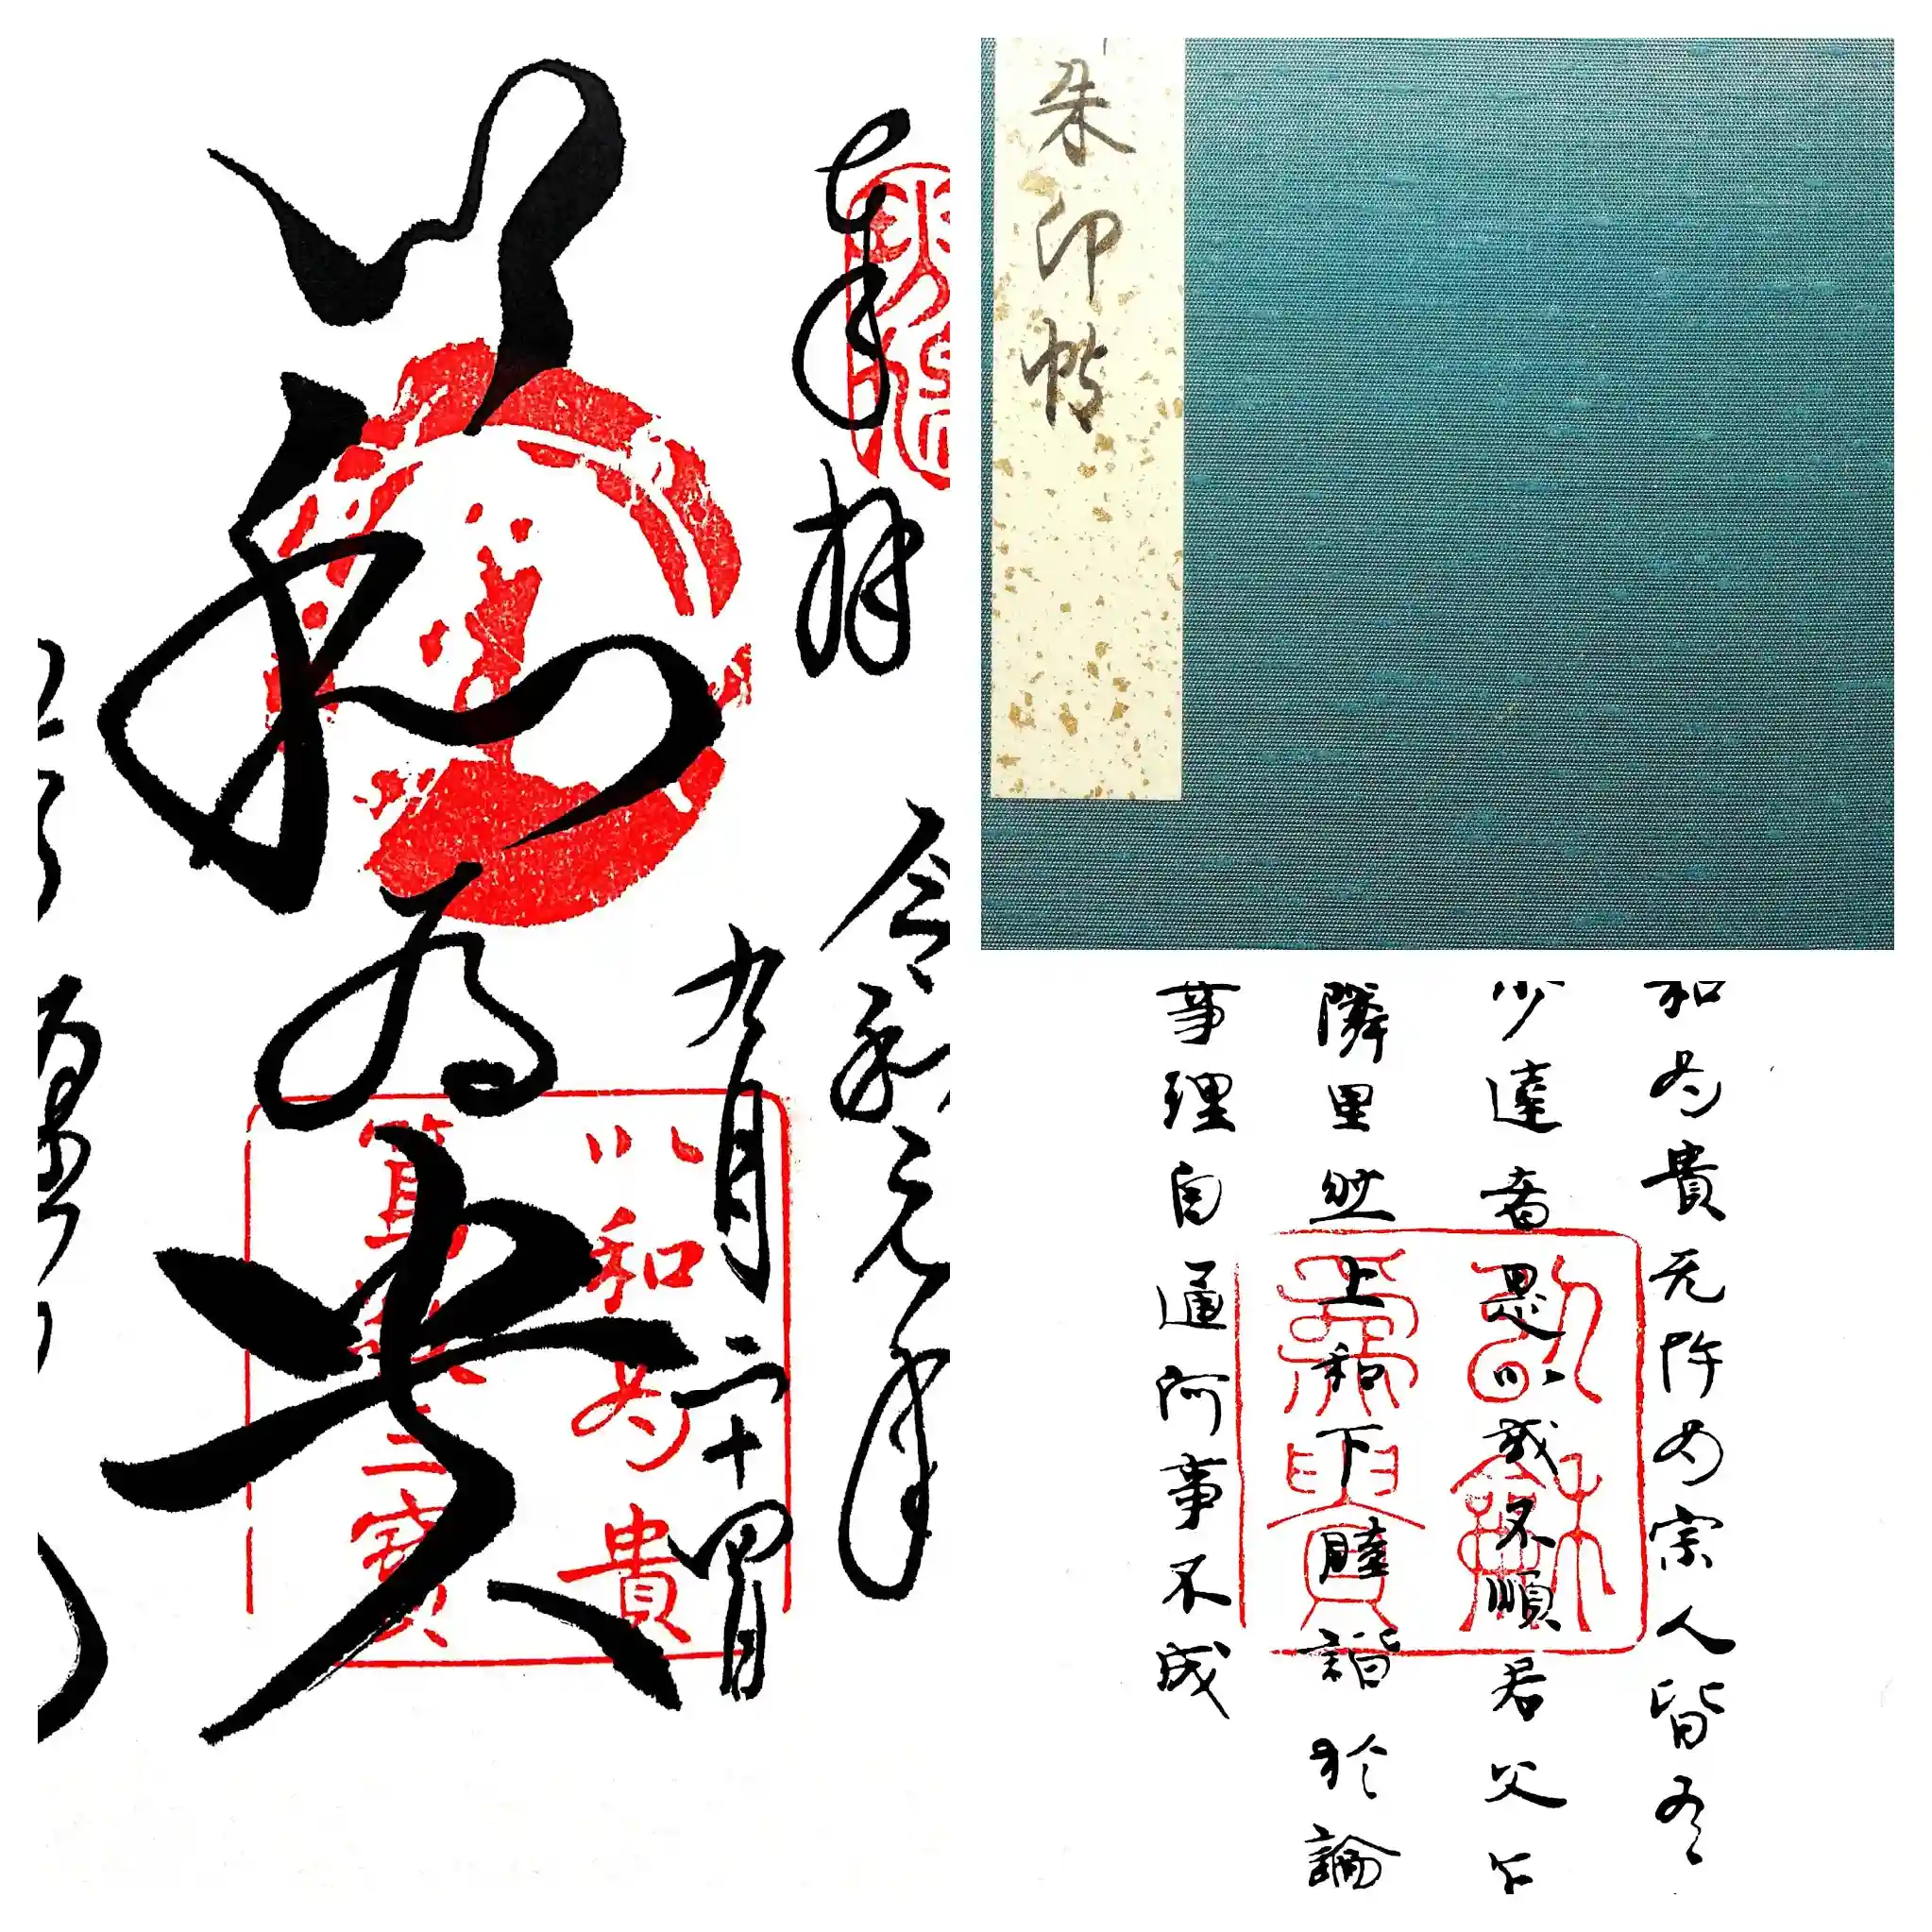 奉拝
令和元年
九月二十四日
以和為貴
以和為貴
篤敬三寳
朱印帖
和為貴无忤為宗人皆有
少達者是以或不順君父乍
隣里然上和下睦諧於論
事理自通何事不成
以龢為貴